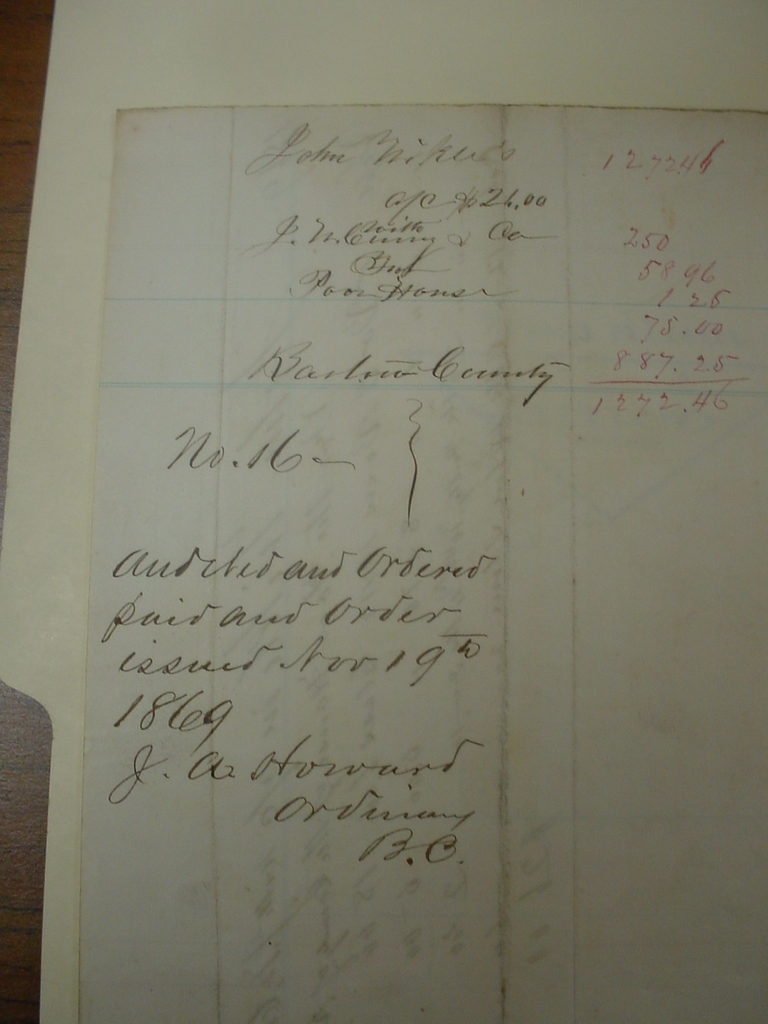 John
a/c $26.00
with
J. & Co
Poor House
Bartow County
No. 16
Audited and Ordered
paid and order
issued Nov 19th
1869
J. A. Howard
Ordinary
B.C.
127246
250
58 96
1 25
75.00
887.25
1272.46